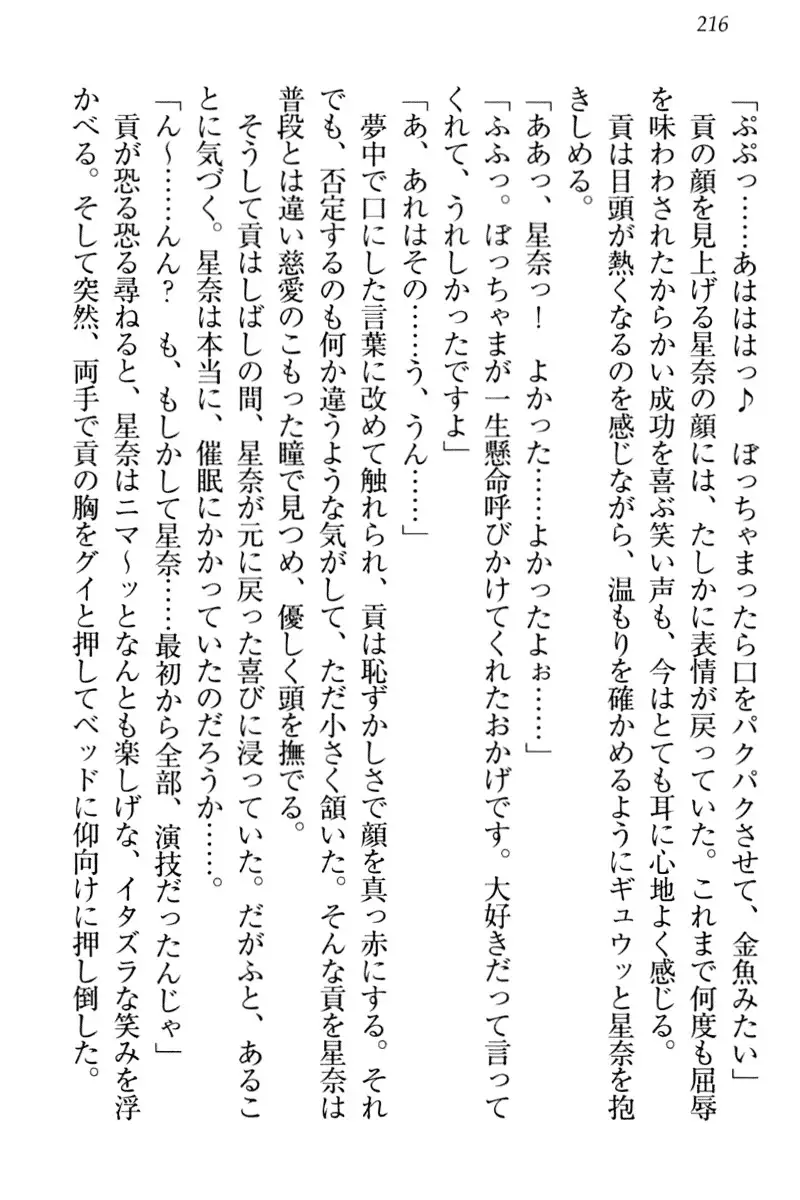 216
「ぷぷっ……あはははっ♪　ぼっちゃまったら口をパクパクさせて、金魚みたい」
　貢の顔を見上げる星奈の顔には、たしかに表情が戻っていた。これまで何度も屈辱
を味わわされたからかい成功を喜ぶ笑い声も、今はとても耳に心地よく感じる。
　貢は目頭が熱くなるのを感じながら、温もりを確かめるようにギュウッと星奈を抱
きしめる。
「ああっ、星奈っ！　よかった……よかったよぉ……」
「ふふっ。ぼっちゃまが一生懸命呼びかけてくれたおかげです。大好きだって言って
くれて、うれしかったですよ」
「あ、あれはその……う、うん……」
　夢中で口にした言葉に改めて触れられ、貢は恥ずかしさで顔を真っ赤にする。それ
でも、否定するのも何か違うような気がして、ただ小さく頷いた。そんな貢を星奈は
普段とは違い慈愛のこもった瞳で見つめ、優しく頭を撫でる。
　そうして貢はしばしの間、星奈が元に戻った喜びに浸っていた。だがふと、あるこ
とに気づく。星奈は本当に、催眠にかかっていたのだろうか……。
「ん～……んん？　も、もしかして星奈……最初から全部、演技だったんじゃ」
　貢が恐る恐る尋ねると、星奈はニマ～ッとなんとも楽しげな、イタズラな笑みを浮
かべる。そして突然、両手で貢の胸をグイと押してベッドに仰向けに押し倒した。